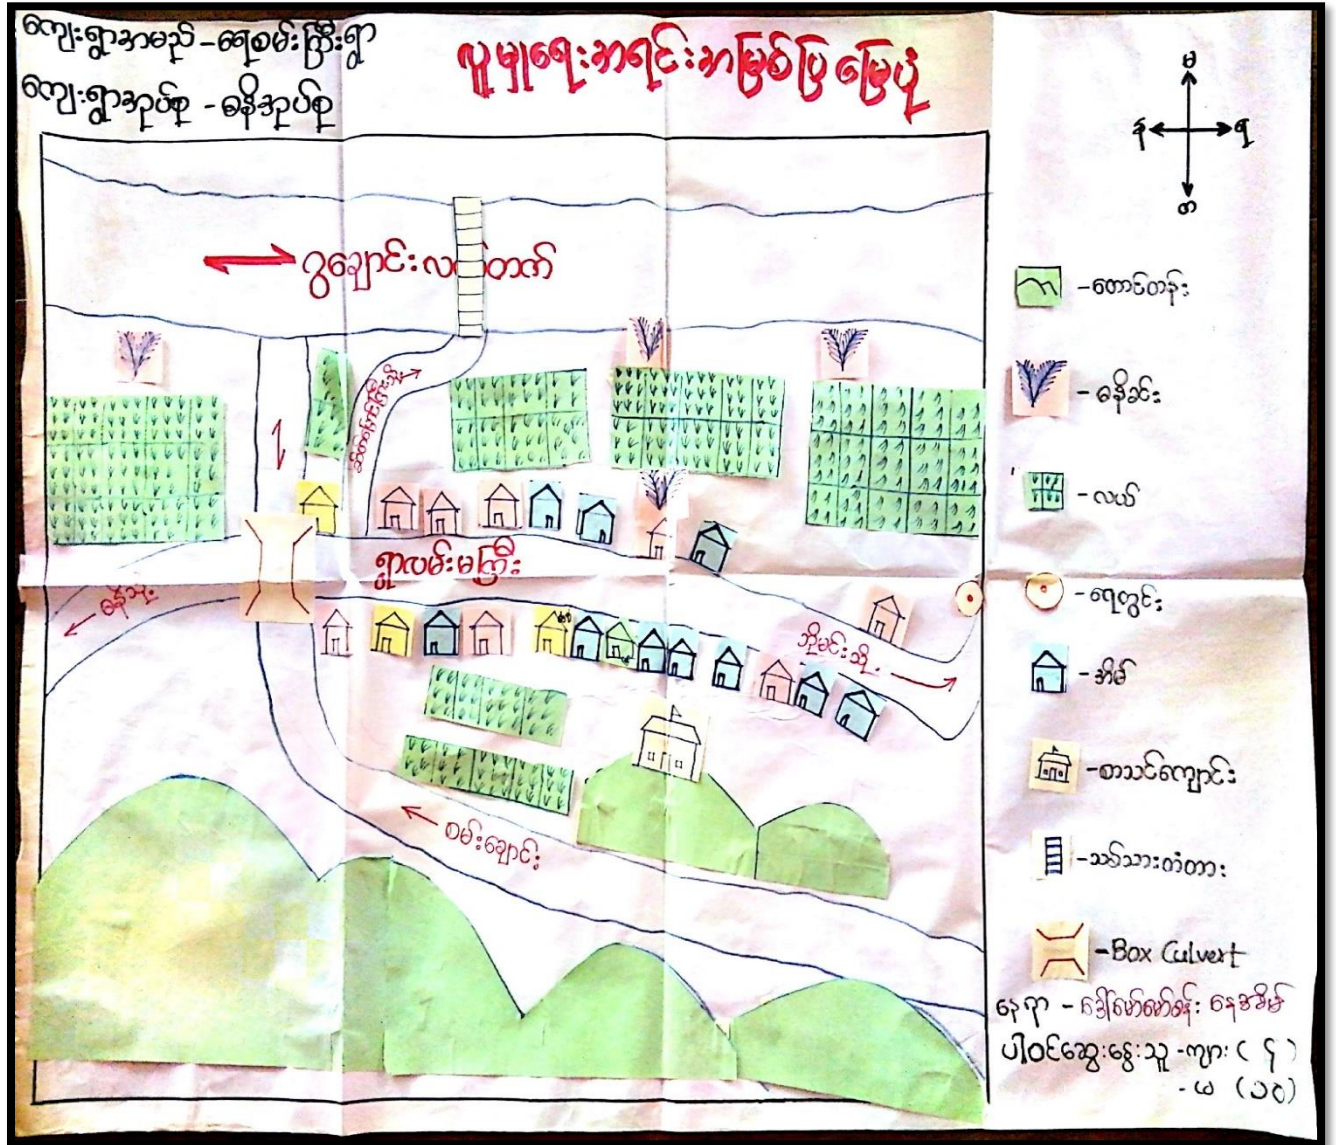 ကျေးရွာအမည် -ရေစမ်းကြီးရွာ
ကျေးရွာအုပ်စု - ဓနိအုပ်စု
လူမှုရေးအရင်းအမြစ်ပြ မြေပုံ
မ
န
ရ
တ
ဂွချောင်းလ
တက်
ရွာလမ်းမကြီး
ဓနိသို့
ဘိုမင်းသို့
စမ်းချောင်း
-တောင်တန်း
- ဓနိခင်း
- လယ်
- ရေတွင်း
-အိမ်
-စာသင်ကျောင်း
-သစ်သားတံတား
-Box Culvert
နေရာ -
နေအိမ်
ပါဝင်ဆွေးနွေးသူ -ကျား ( ၄ )
- မ (၁၀)